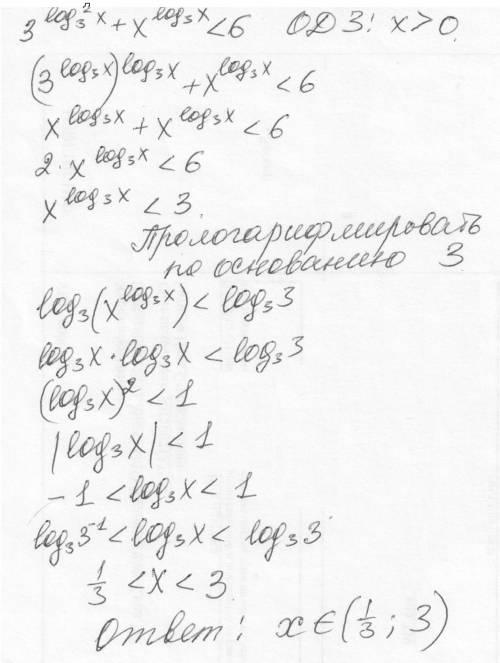 3^(log₃²x) + x^(log₃x) < 6 ОДЗ: x > 0.
(3^(log₃x))^(log₃x) + x^(log₃x) < 6
x^(log₃x) + x^(log₃x) < 6
2 · x^(log₃x) < 6
x^(log₃x) < 3.
Прологарифмировать
по основанию 3
log₃(x^(log₃x)) < log₃3
log₃x · log₃x < log₃3
(log₃x)² < 1
|log₃x| < 1
-1 < log₃x < 1
log₃3⁻¹ < log₃x < log₃3
1/3 < x < 3.
Ответ: x ∈ (1/3; 3)